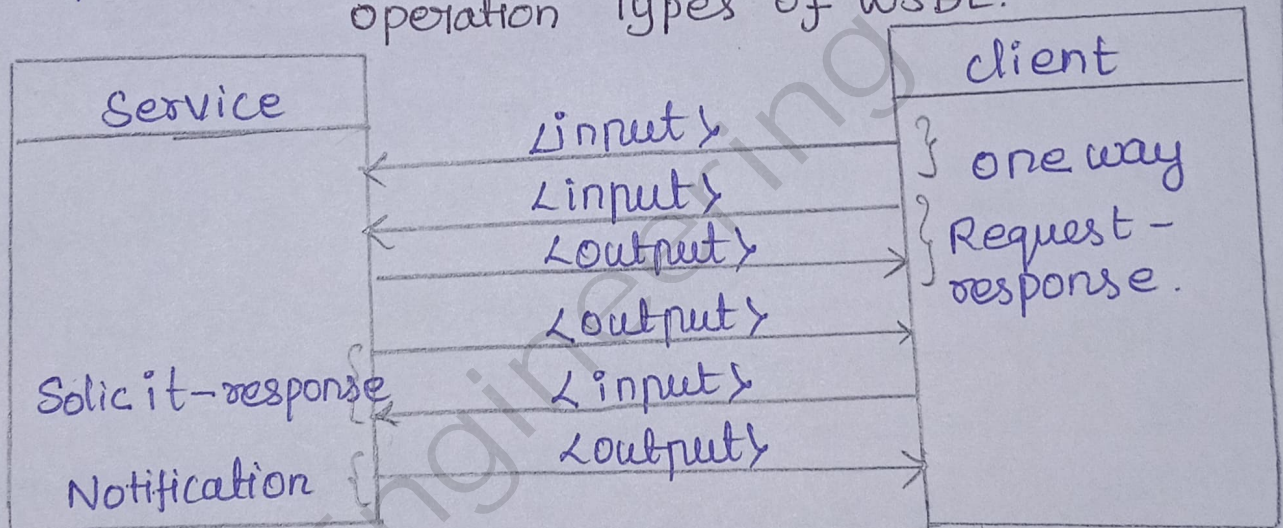 operation Types of WSDL.
Service
client
<input>
one way
<input>
<output>
Request-
response.
<output>
Solicit-response
<input>
Notification
<output>